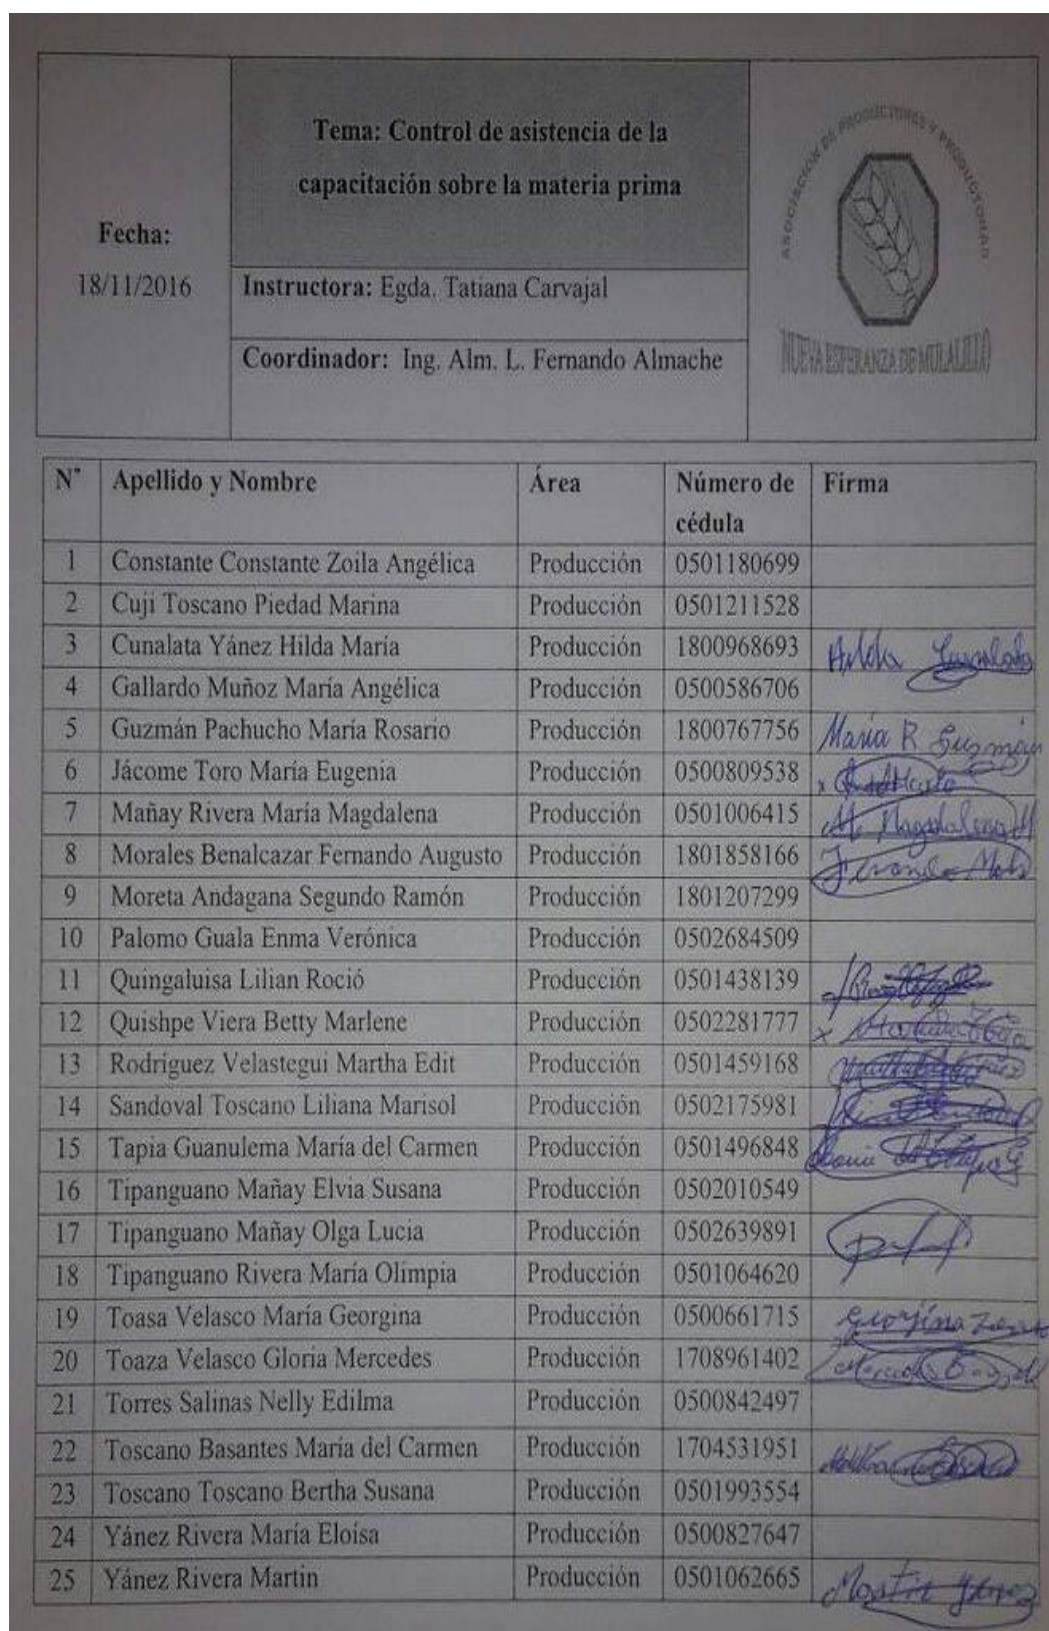 Fecha:
18/11/2016
Tema: Control de asistencia de la
capacitación sobre la materia prima
Instructora: Egda. Tatiana Carvajal
Coordinador: Ing. Alm. L. Fernando Almache
ASOCIACIÓN DE PRODUCTORES Y PRODUCTORAS
NUEVA ESPERANZA DE MULALILLO
N° Apellido y Nombre Área Número de cédula Firma
1 Constante Constante Zoila Angélica Producción 0501180699
2 Cuji Toscano Piedad Marina Producción 0501211528
3 Cunalata Yánez Hilda María Producción 1800968693 Hilda Cunalata
4 Gallardo Muñoz María Angélica Producción 0500586706
5 Guzmán Pachucho María Rosario Producción 1800767756 Maria R Guzmán
6 Jácome Toro María Eugenia Producción 0500809538
7 Mañay Rivera María Magdalena Producción 0501006415 M. Magdalena M
8 Morales Benalcazar Fernando Augusto Producción 1801858166 Fernando
9 Moreta Andagana Segundo Ramón Producción 1801207299
10 Palomo Guala Enma Verónica Producción 0502684509
11 Quingaluisa Lilian Roció Producción 0501438139
12 Quishpe Viera Betty Marlene Producción 0502281777
13 Rodríguez Velastegui Martha Edit Producción 0501459168
14 Sandoval Toscano Liliana Marisol Producción 0502175981
15 Tapia Guanulema María del Carmen Producción 0501496848
16 Tipanguano Mañay Elvia Susana Producción 0502010549
17 Tipanguano Mañay Olga Lucia Producción 0502639891
18 Tipanguano Rivera María Olimpia Producción 0501064620
19 Toasa Velasco María Georgina Producción 0500661715 Georjina
20 Toaza Velasco Gloria Mercedes Producción 1708961402
21 Torres Salinas Nelly Edilma Producción 0500842497
22 Toscano Basantes María del Carmen Producción 1704531951
23 Toscano Toscano Bertha Susana Producción 0501993554
24 Yánez Rivera María Eloísa Producción 0500827647
25 Yánez Rivera Martin Producción 0501062665 Martin Yanez